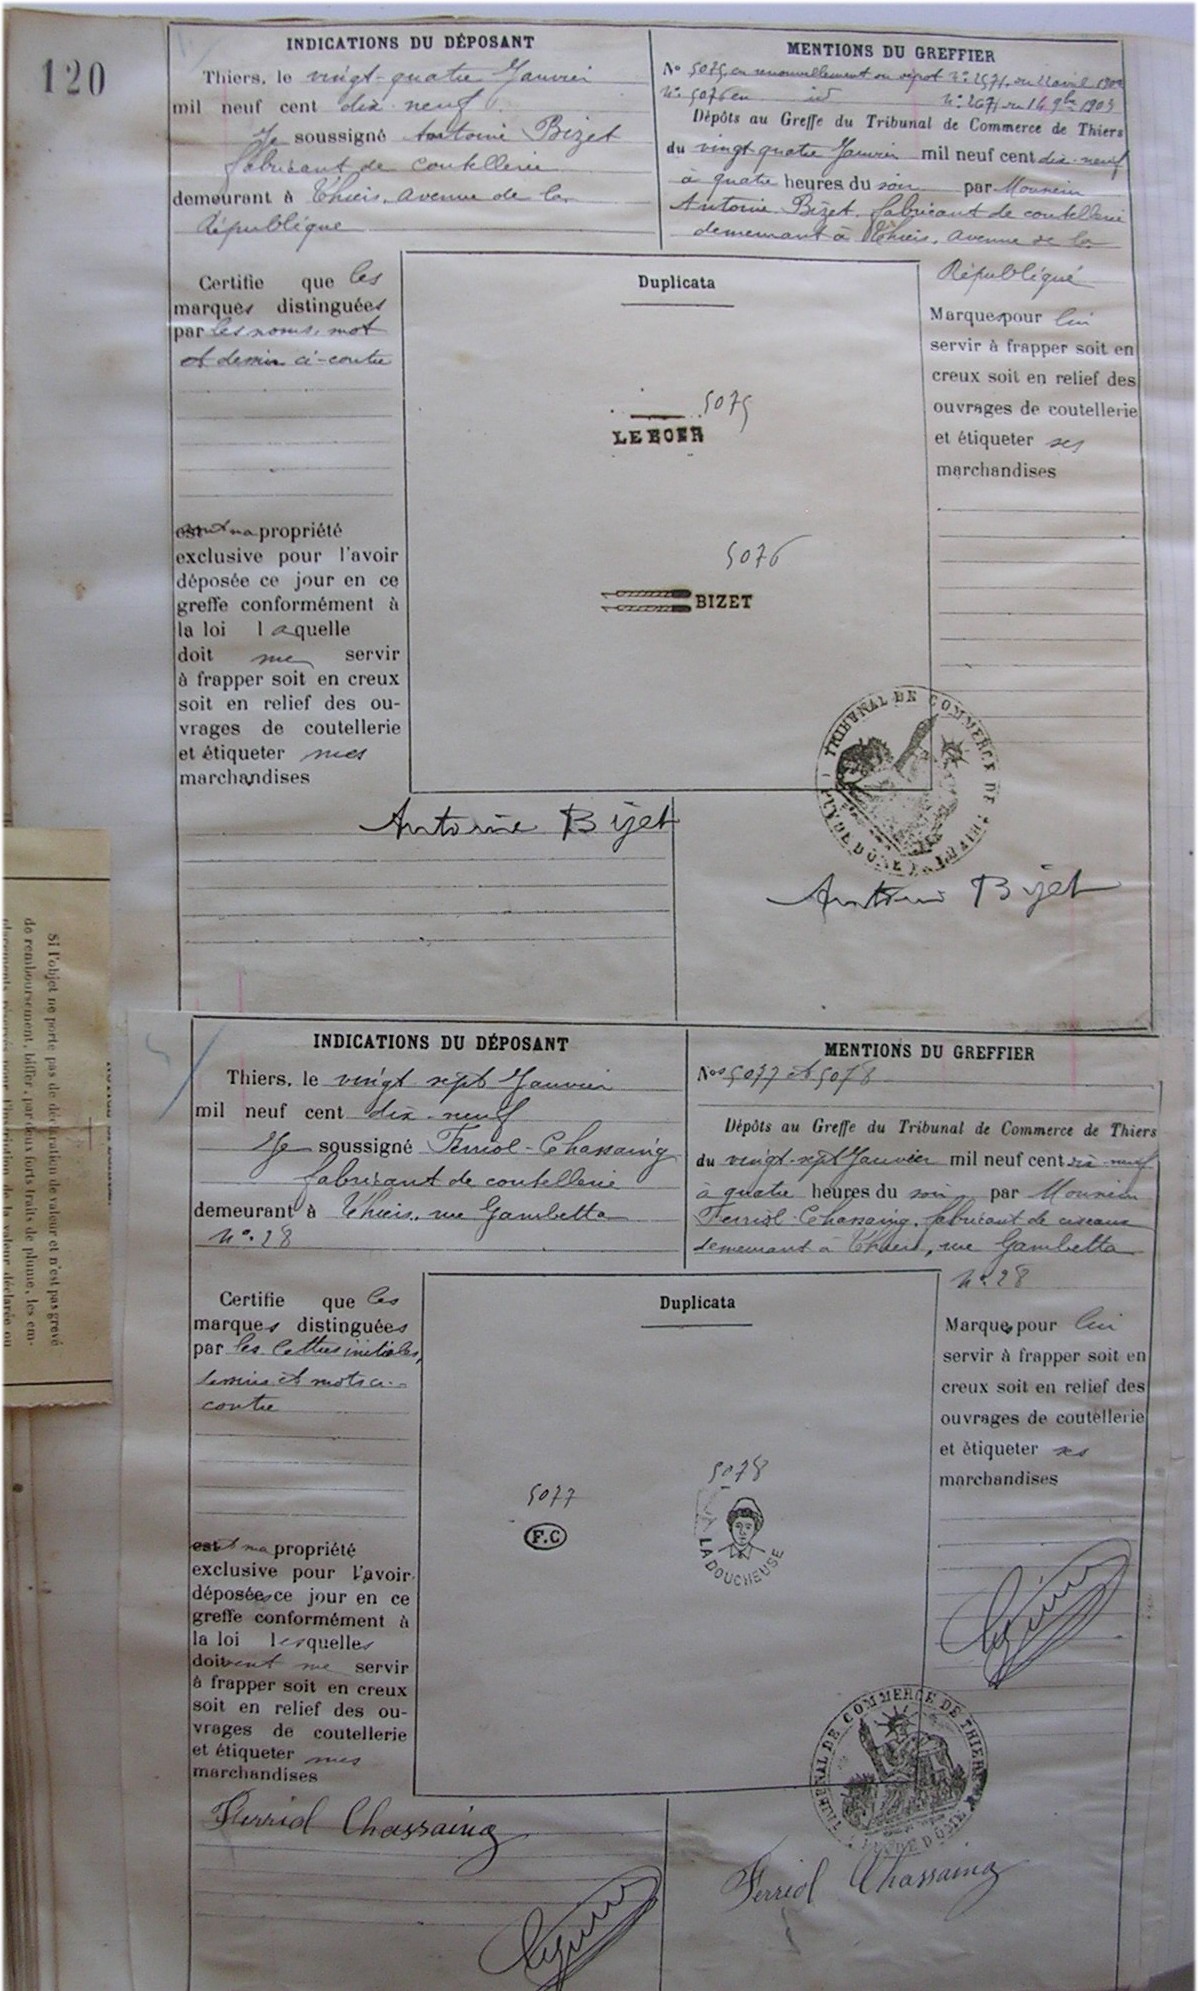 120
INDICATIONS DU DÉPOSANT
Thiers, le vingt-quatre Janvier
mil neuf cent dix-neuf
Je soussigné Antoine Bizet
fabricant de coutellerie
demeurant à Thiers, avenue de la
République
Certifie que les
marques distinguées
par les noms, mot
et dessin ci-contre
sont ma propriété
exclusive pour l'avoir
déposée ce jour en ce
greffe conformément à
la loi laquelle
doit me servir
à frapper soit en creux
soit en relief des ou-
vrages de coutellerie
et étiqueter mes
marchandises
Antoine Bizet
MENTIONS DU GREFFIER
No 5075 en renouvellement du dépôt No 2571 du avril
No 5076 en id No 2671 du 14 9bre 1903
Dépôts au Greffe du Tribunal de Commerce de Thiers
du vingt-quatre Janvier mil neuf cent dix-neuf
à quatre heures du soir par Monsieur
Antoine Bizet, fabricant de coutellerie
demeurant à Thiers, avenue de la
République
Duplicata
5075
LE BOER
5076
BIZET
Marques pour lui
servir à frapper soit en
creux soit en relief des
ouvrages de coutellerie
et étiqueter ses
marchandises
TRIBUNAL DE COMMERCE DE THIERS
PUY DE DÔME
Antoine Bizet
Si l'objet ne porte pas de déclaration de valeur et n'est pas grevé
de remboursement, biffer, par deux forts traits de plume, les em-
INDICATIONS DU DÉPOSANT
Thiers, le vingt sept Janvier
mil neuf cent dix-neuf
Je soussigné Ferriol-Chassaing
fabricant de coutellerie
demeurant à Thiers, rue Gambetta
No. 28
Certifie que les
marques distinguées
par les lettres initiales,
dessins et mots ci-
contre
est ma propriété
exclusive pour l'avoir
déposées ce jour en ce
greffe conformément à
la loi lesquelles
doivent me servir
à frapper soit en creux
soit en relief des ou-
vrages de coutellerie
et étiqueter mes
marchandises
Ferriol Chassaing
MENTIONS DU GREFFIER
Nos 5077 et 5078
Dépôts au Greffe du Tribunal de Commerce de Thiers
du vingt-sept Janvier mil neuf cent dix-neuf
à quatre heures du soir par Monsieur
Ferriol-Chassaing, fabricant de ciseaux
demeurant à Thiers, rue Gambetta
No. 28
Duplicata
5077
F.C
5078
LA DOUCHEUSE
Marques pour lui
servir à frapper soit en
creux soit en relief des
ouvrages de coutellerie
et étiqueter ses
marchandises
TRIBUNAL DE COMMERCE DE THIERS
PUY DE DÔME
Ferriol Chassaing